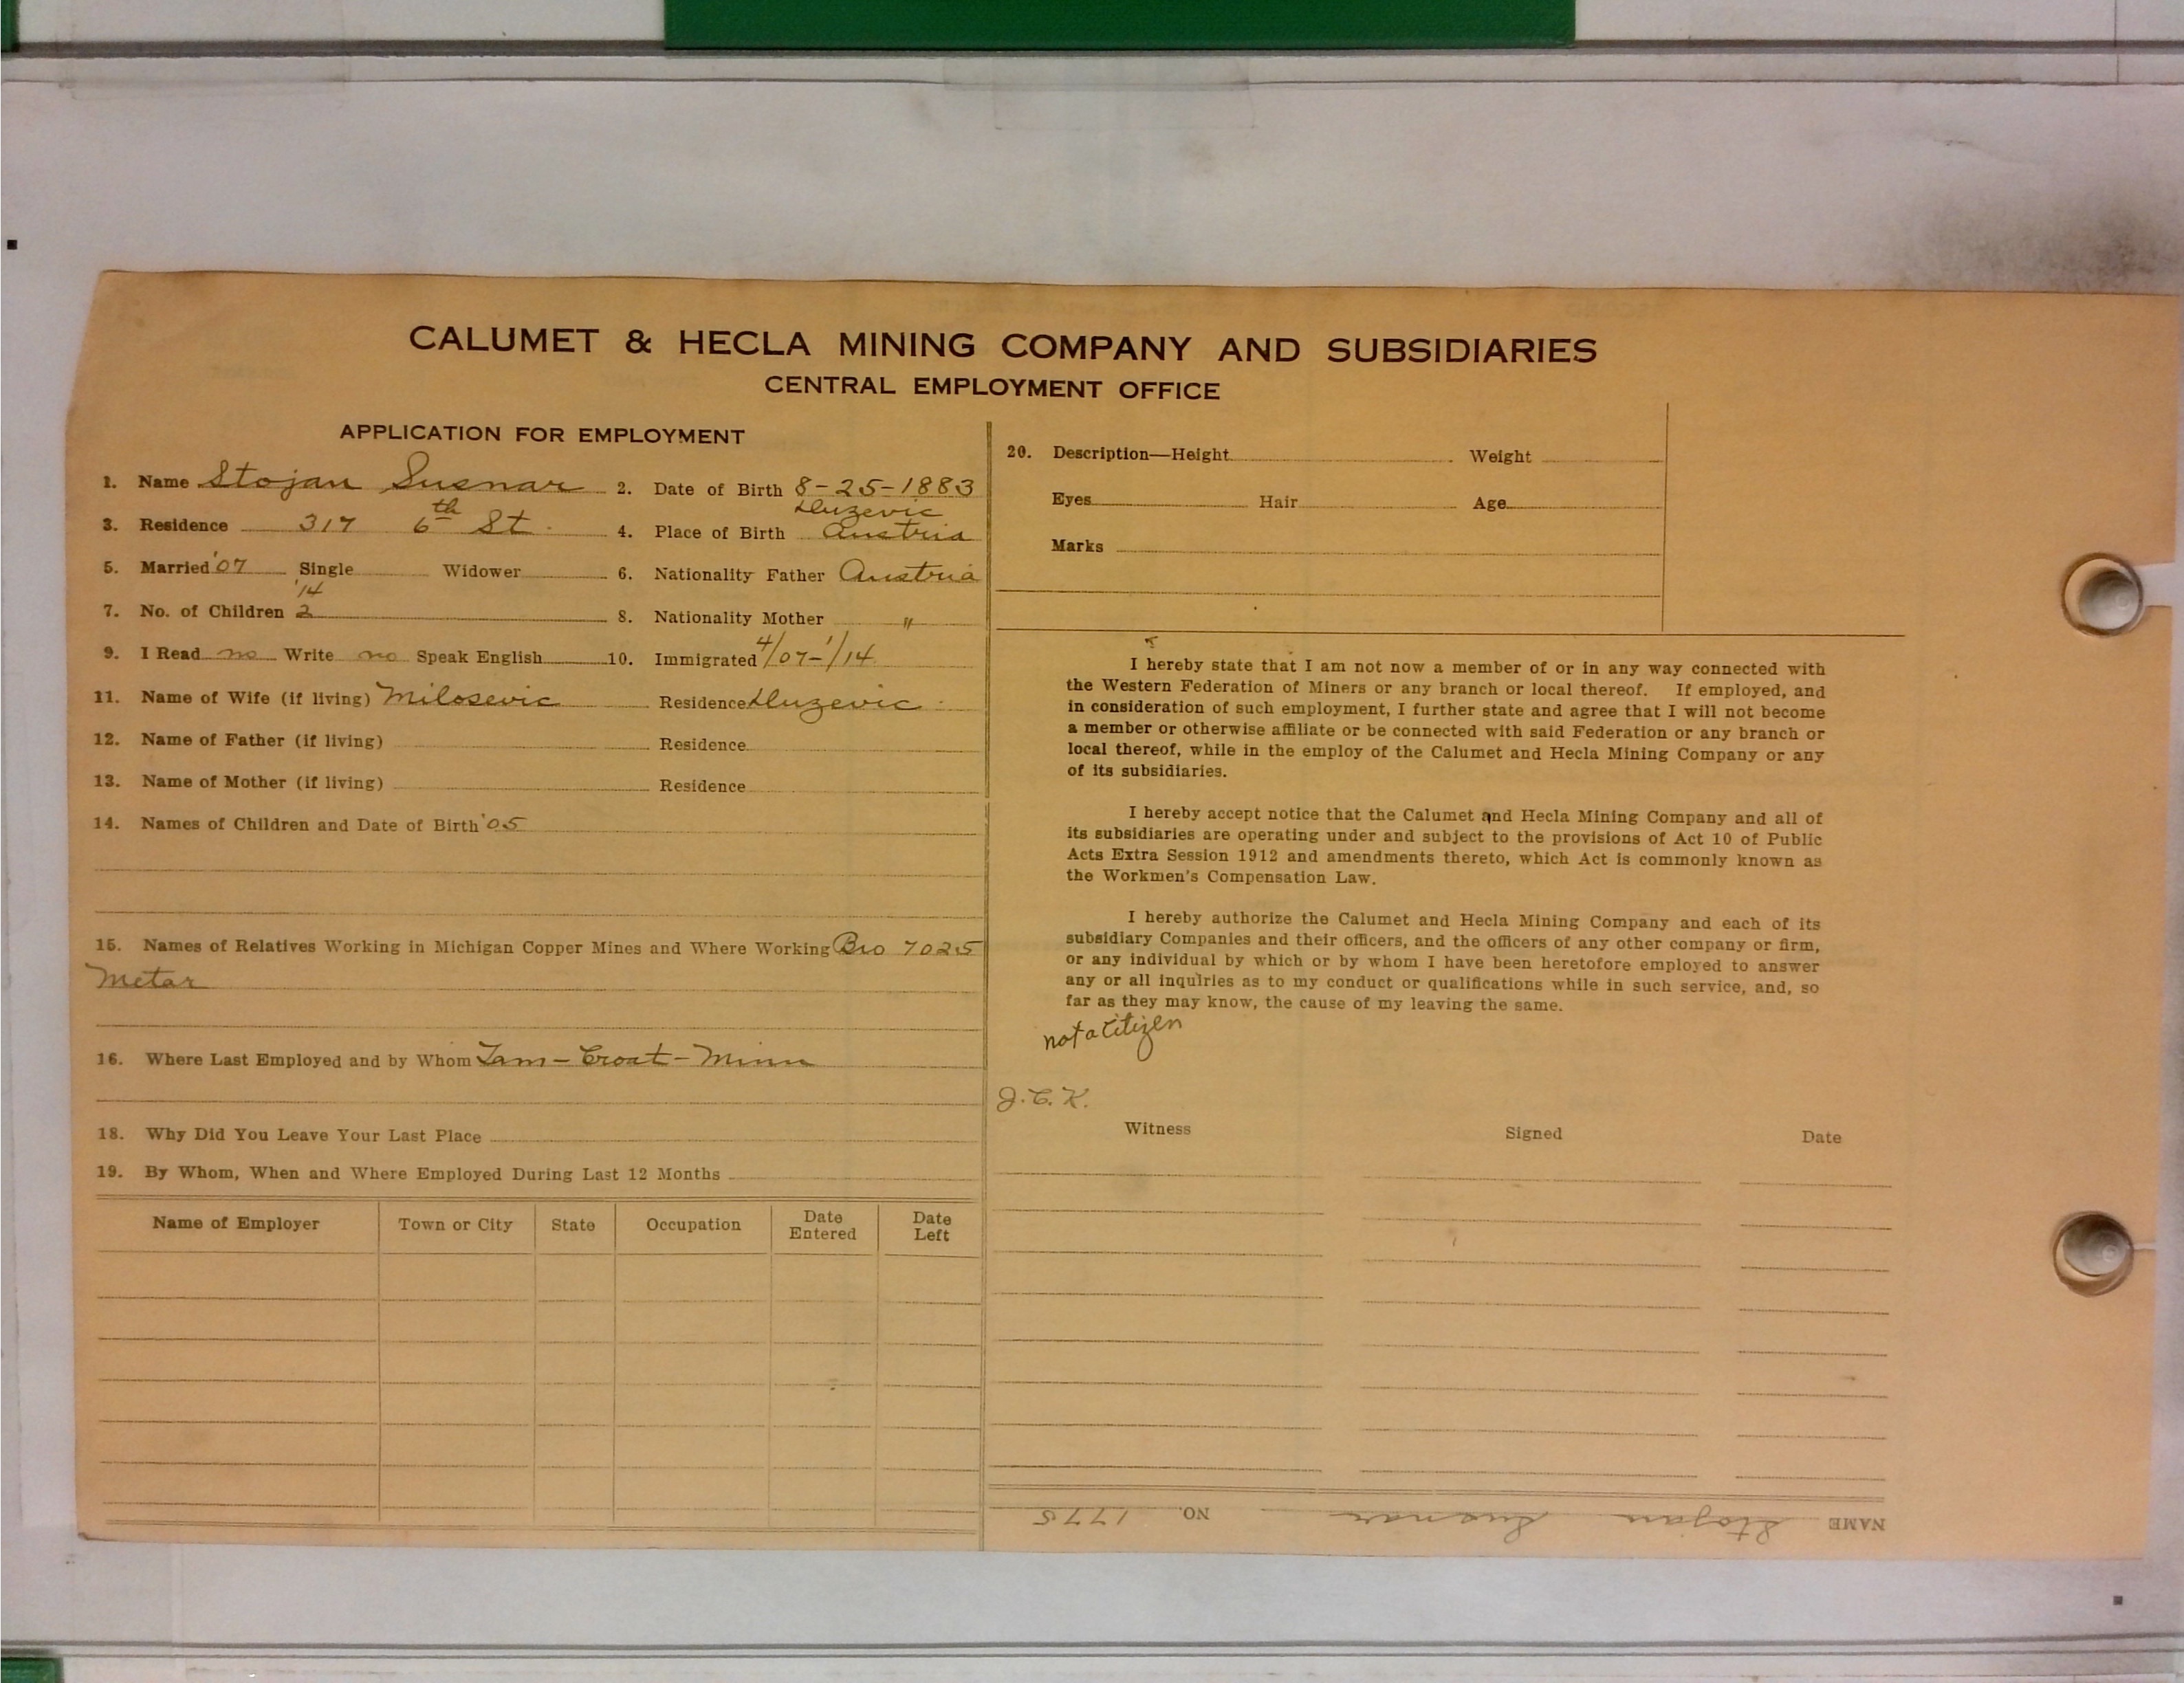 CALUMET & HECLA MINING COMPANY AND SUBSIDIARIES
CENTRAL EMPLOYMENT OFFICE
APPLICATION FOR EMPLOYMENT
1. Name Stojan Susnar 2. Date of Birth 8-25-1883
3. Residence 317 6th St. 4. Place of Birth Austria
5. Married '07 Single Widower 6. Nationality Father Austria
'14
7. No. of Children 2 8. Nationality Mother "
9. I Read no Write no Speak English 10. Immigrated 4/07-1/14
11. Name of Wife (if living) Milosevic Residence
12. Name of Father (if living) Residence
13. Name of Mother (if living) Residence
14. Names of Children and Date of Birth '05
15. Names of Relatives Working in Michigan Copper Mines and Where Working Bro 7025
Metar
16. Where Last Employed and by Whom Croat-Minn
18. Why Did You Leave Your Last Place
19. By Whom, When and Where Employed During Last 12 Months
Name of Employer Town or City State Occupation Date Entered Date Left
20. Description—Height Weight
Eyes Hair Age
Marks
I hereby state that I am not now a member of or in any way connected with
the Western Federation of Miners or any branch or local thereof. If employed, and
in consideration of such employment, I further state and agree that I will not become
a member or otherwise affiliate or be connected with said Federation or any branch or
local thereof, while in the employ of the Calumet and Hecla Mining Company or any
of its subsidiaries.
I hereby accept notice that the Calumet and Hecla Mining Company and all of
its subsidiaries are operating under and subject to the provisions of Act 10 of Public
Acts Extra Session 1912 and amendments thereto, which Act is commonly known as
the Workmen's Compensation Law.
I hereby authorize the Calumet and Hecla Mining Company and each of its
subsidiary Companies and their officers, and the officers of any other company or firm,
or any individual by which or by whom I have been heretofore employed to answer
any or all inquiries as to my conduct or qualifications while in such service, and, so
far as they may know, the cause of my leaving the same.
not a Citizen
J.C.K.
Witness Signed Date
NAME Stojan Susnar NO. 1775